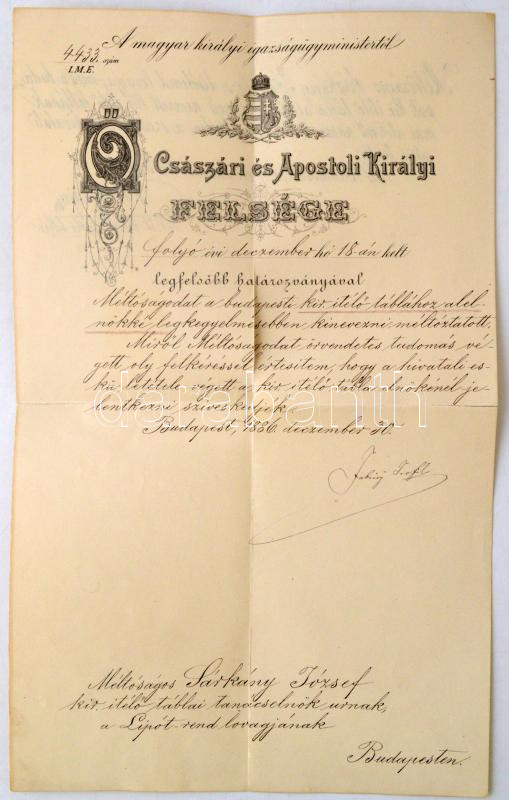 A magyar királyi igazságügyministertől
4433. szám
I.M.E.
Ő Császári és Apostoli Királyi
FELSÉGE
folyó évi deczember hó 18-án kelt
legfelsőbb határozványával
Méltóságodat a budapesti kir. itélő táblához alel-
nökké legkegyelmesebben kinevezni méltóztatott.
Miről Méltóságodat örvendetes tudomás vé-
gett oly felkéréssel értesitem, hogy a hivatali es-
kü letétele végett a kir. itélő tábla elnökénél je-
lentkezni sziveskedjék.
Budapest, 1886. deczember 30.
Méltóságos Sárkány József
kir. itélő táblai tanácselnök urnak,
a Lipót-rend lovagjának
Budapesten.
darabanth